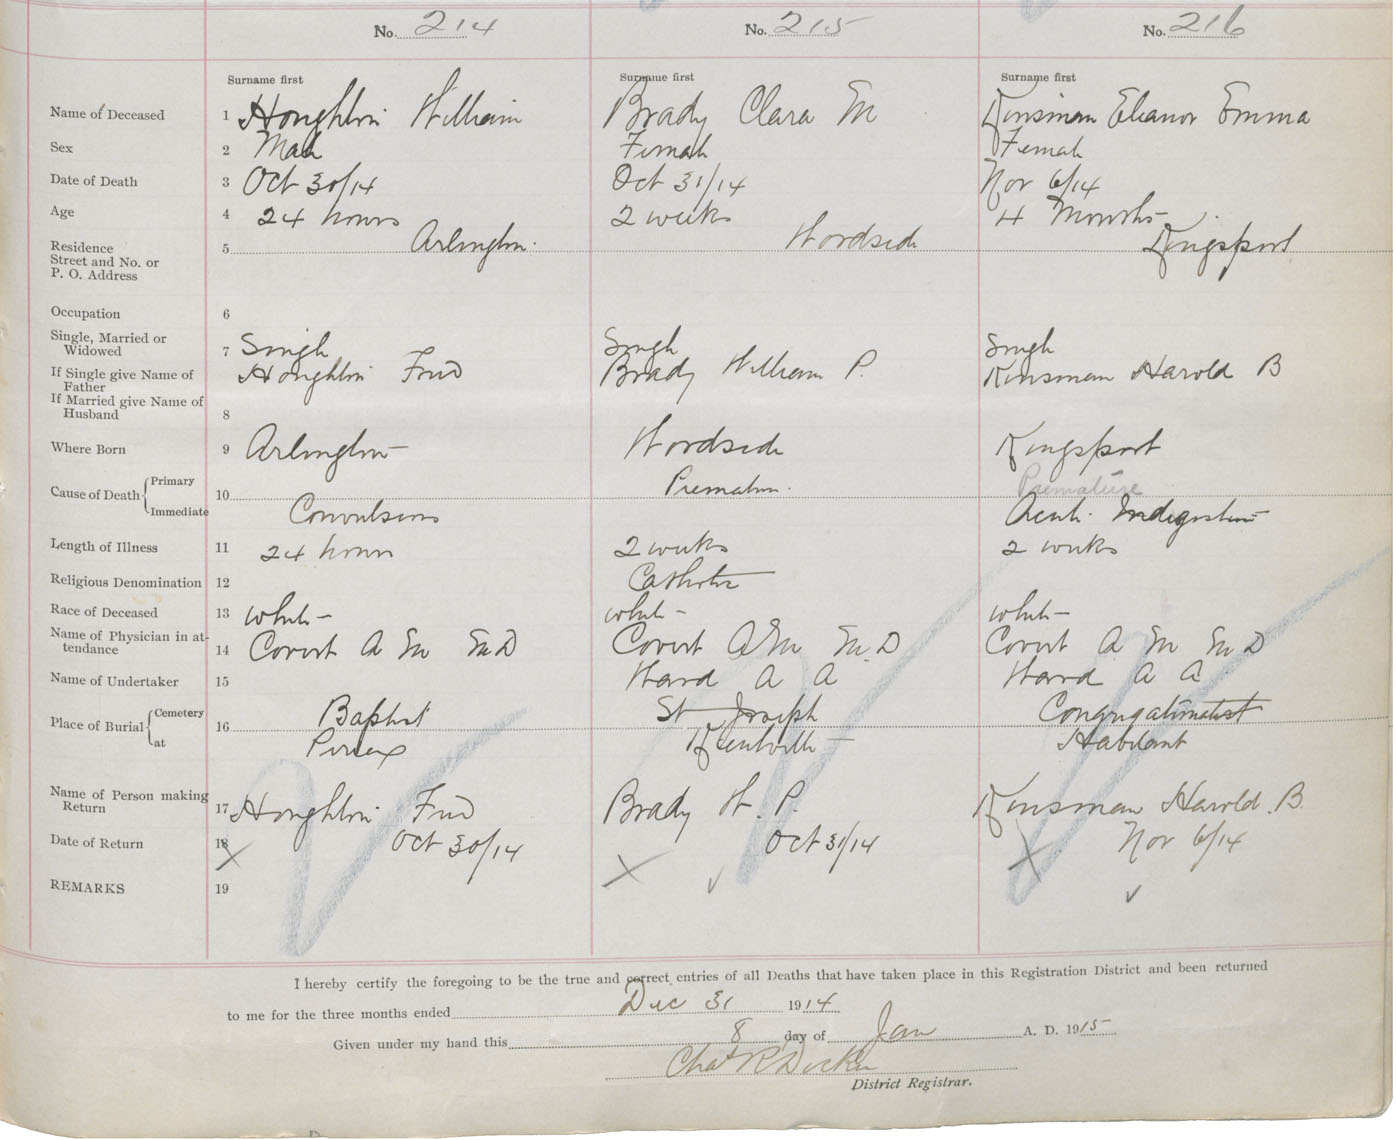 No. 214 No. 215 No. 216
Surname first Surname first Surname first
Name of Deceased 1 Houghton William Brady Clara M Kinsman Eleanor Emma
Sex 2 Male Female Female
Date of Death 3 Oct 30/14 Oct 31/14 Nov 6/14
Age 4 24 hours 2 weeks 4 Months
Residence 5 Arlington. Woodside Kingsport
Street and No. or
P. O. Address
Occupation 6
Single, Married or
Widowed 7 Single Single Single
If Single give Name of
Father Houghton Fred Brady William P. Kinsman Harold B
If Married give Name of
Husband 8
Where Born 9 Arlington Woodside Kingsport
Cause of Death Primary 10 Premature. Premature
Immediate Convulsions Acute Indigestion
Length of Illness 11 24 hours 2 weeks 2 weeks
Religious Denomination 12 Catholic
Race of Deceased 13 white white white
Name of Physician in at-
tendance 14 Covert A M M D Covert A M M. D Covert A M M D
Name of Undertaker 15 Ward A A Ward A A
Place of Burial Cemetery 16 Baptist St Joseph Congregationalist
at Kentville Habitant
Name of Person making
Return 17 Houghton Fred Brady W. P. Kinsman Harold. B.
Date of Return 18 Oct 30/14 Oct 31/14 Nov 6/14
REMARKS 19
I hereby certify the foregoing to be the true and correct entries of all Deaths that have taken place in this Registration District and been returned
to me for the three months ended Dec 31 1914
Given under my hand this 8 day of Jan A. D. 1915
Chas R
District Registrar.